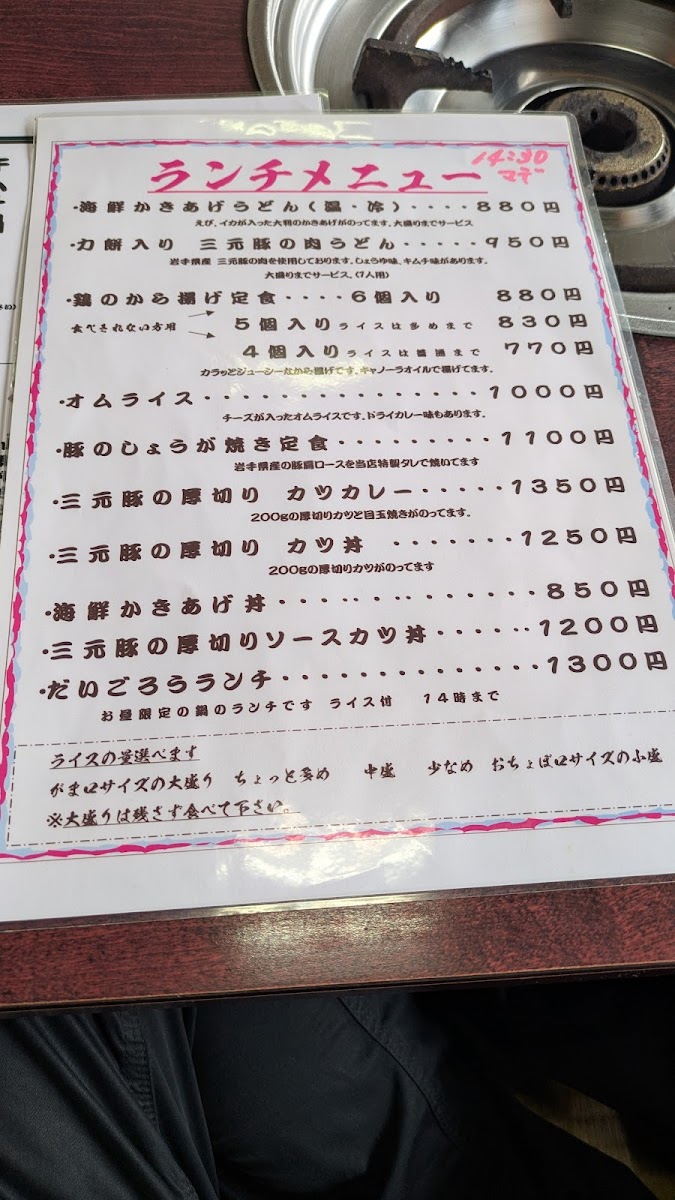 ランチメニュー
14:30
マデ
・海鮮かきあげうどん(温・冷)・・・・880円
えび、イカが入った大判のかきあげがのってます。大盛りまでサービス
・力餅入り 三元豚の肉うどん・・・・・950円
岩手県産 三元豚の肉を使用しております。しょうゆ味、キムチ味があります。
大盛りまでサービス、(1人用)
・鶏のから揚げ定食・・・・6個入り 880円
食べきれない方用 5個入りライスは多めまで 830円
4個入りライスは普通まで 770円
カラッとジューシーなから揚げです。キャノーラオイルで揚げてます。
・オムライス・・・・・・・・・・・・・・・・1000円
チーズが入ったオムライスです。ドライカレー味もあります。
・豚のしょうが焼き定食・・・・・・・・・1100円
岩手県産の豚肩ロースを当店特製タレで焼いてます
・三元豚の厚切り カツカレー・・・・・1350円
200gの厚切りカツと目玉焼きがのってます。
・三元豚の厚切り カツ丼 ・・・・・・・1250円
200gの厚切りカツがのってます
・海鮮かきあげ丼・・・・・・・・・・・・・・850円
・三元豚の厚切りソースカツ丼・・・・・・1200円
・だいごろうランチ・・・・・・・・・・・・・・1300円
お昼限定の鍋のランチです ライス付 14時まで
ライスの量選べます
がま口サイズの大盛り ちょっと多め 中盛 少なめ おちょぼ口サイズの小盛
※大盛りは残さず食べて下さい。